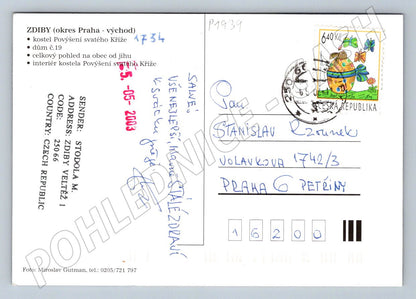 ZDIBY (okres Praha - východ)
• kostel Povýšení svatého Kříže
• dům č.19
• celkový pohled na obec od jihu
• interiér kostela Povýšení svatého Kříže
1734
P1939
-5.-05-2003
SENDER: STODOLA M.
ADDRESS: ZDIBY VELTĚŽ 1
CODE: 25066
COUNTRY: CZECH REPUBLIC
SALVE!
VŠE NEJLEPŠÍ, hlavně STÁLÉ ZDRAVÍ
K svátku přeje
6,40 Kč
ČESKÁ REPUBLIKA
250 66
Pan
STANISLAV
VOLAVKOVA 1742/3
PRAHA 6 PETŘINY
16200
Foto: Miroslav Gutman, tel.: 0205/721 797
POHLEDNICE